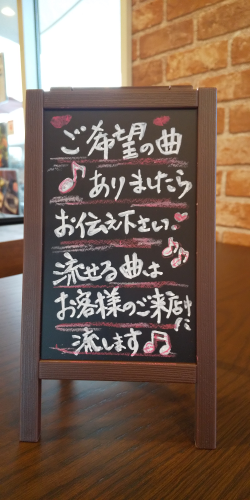 ご希望の曲
ありましたら
お伝え下さい
流せる曲は
お客様のご来店中に
流します